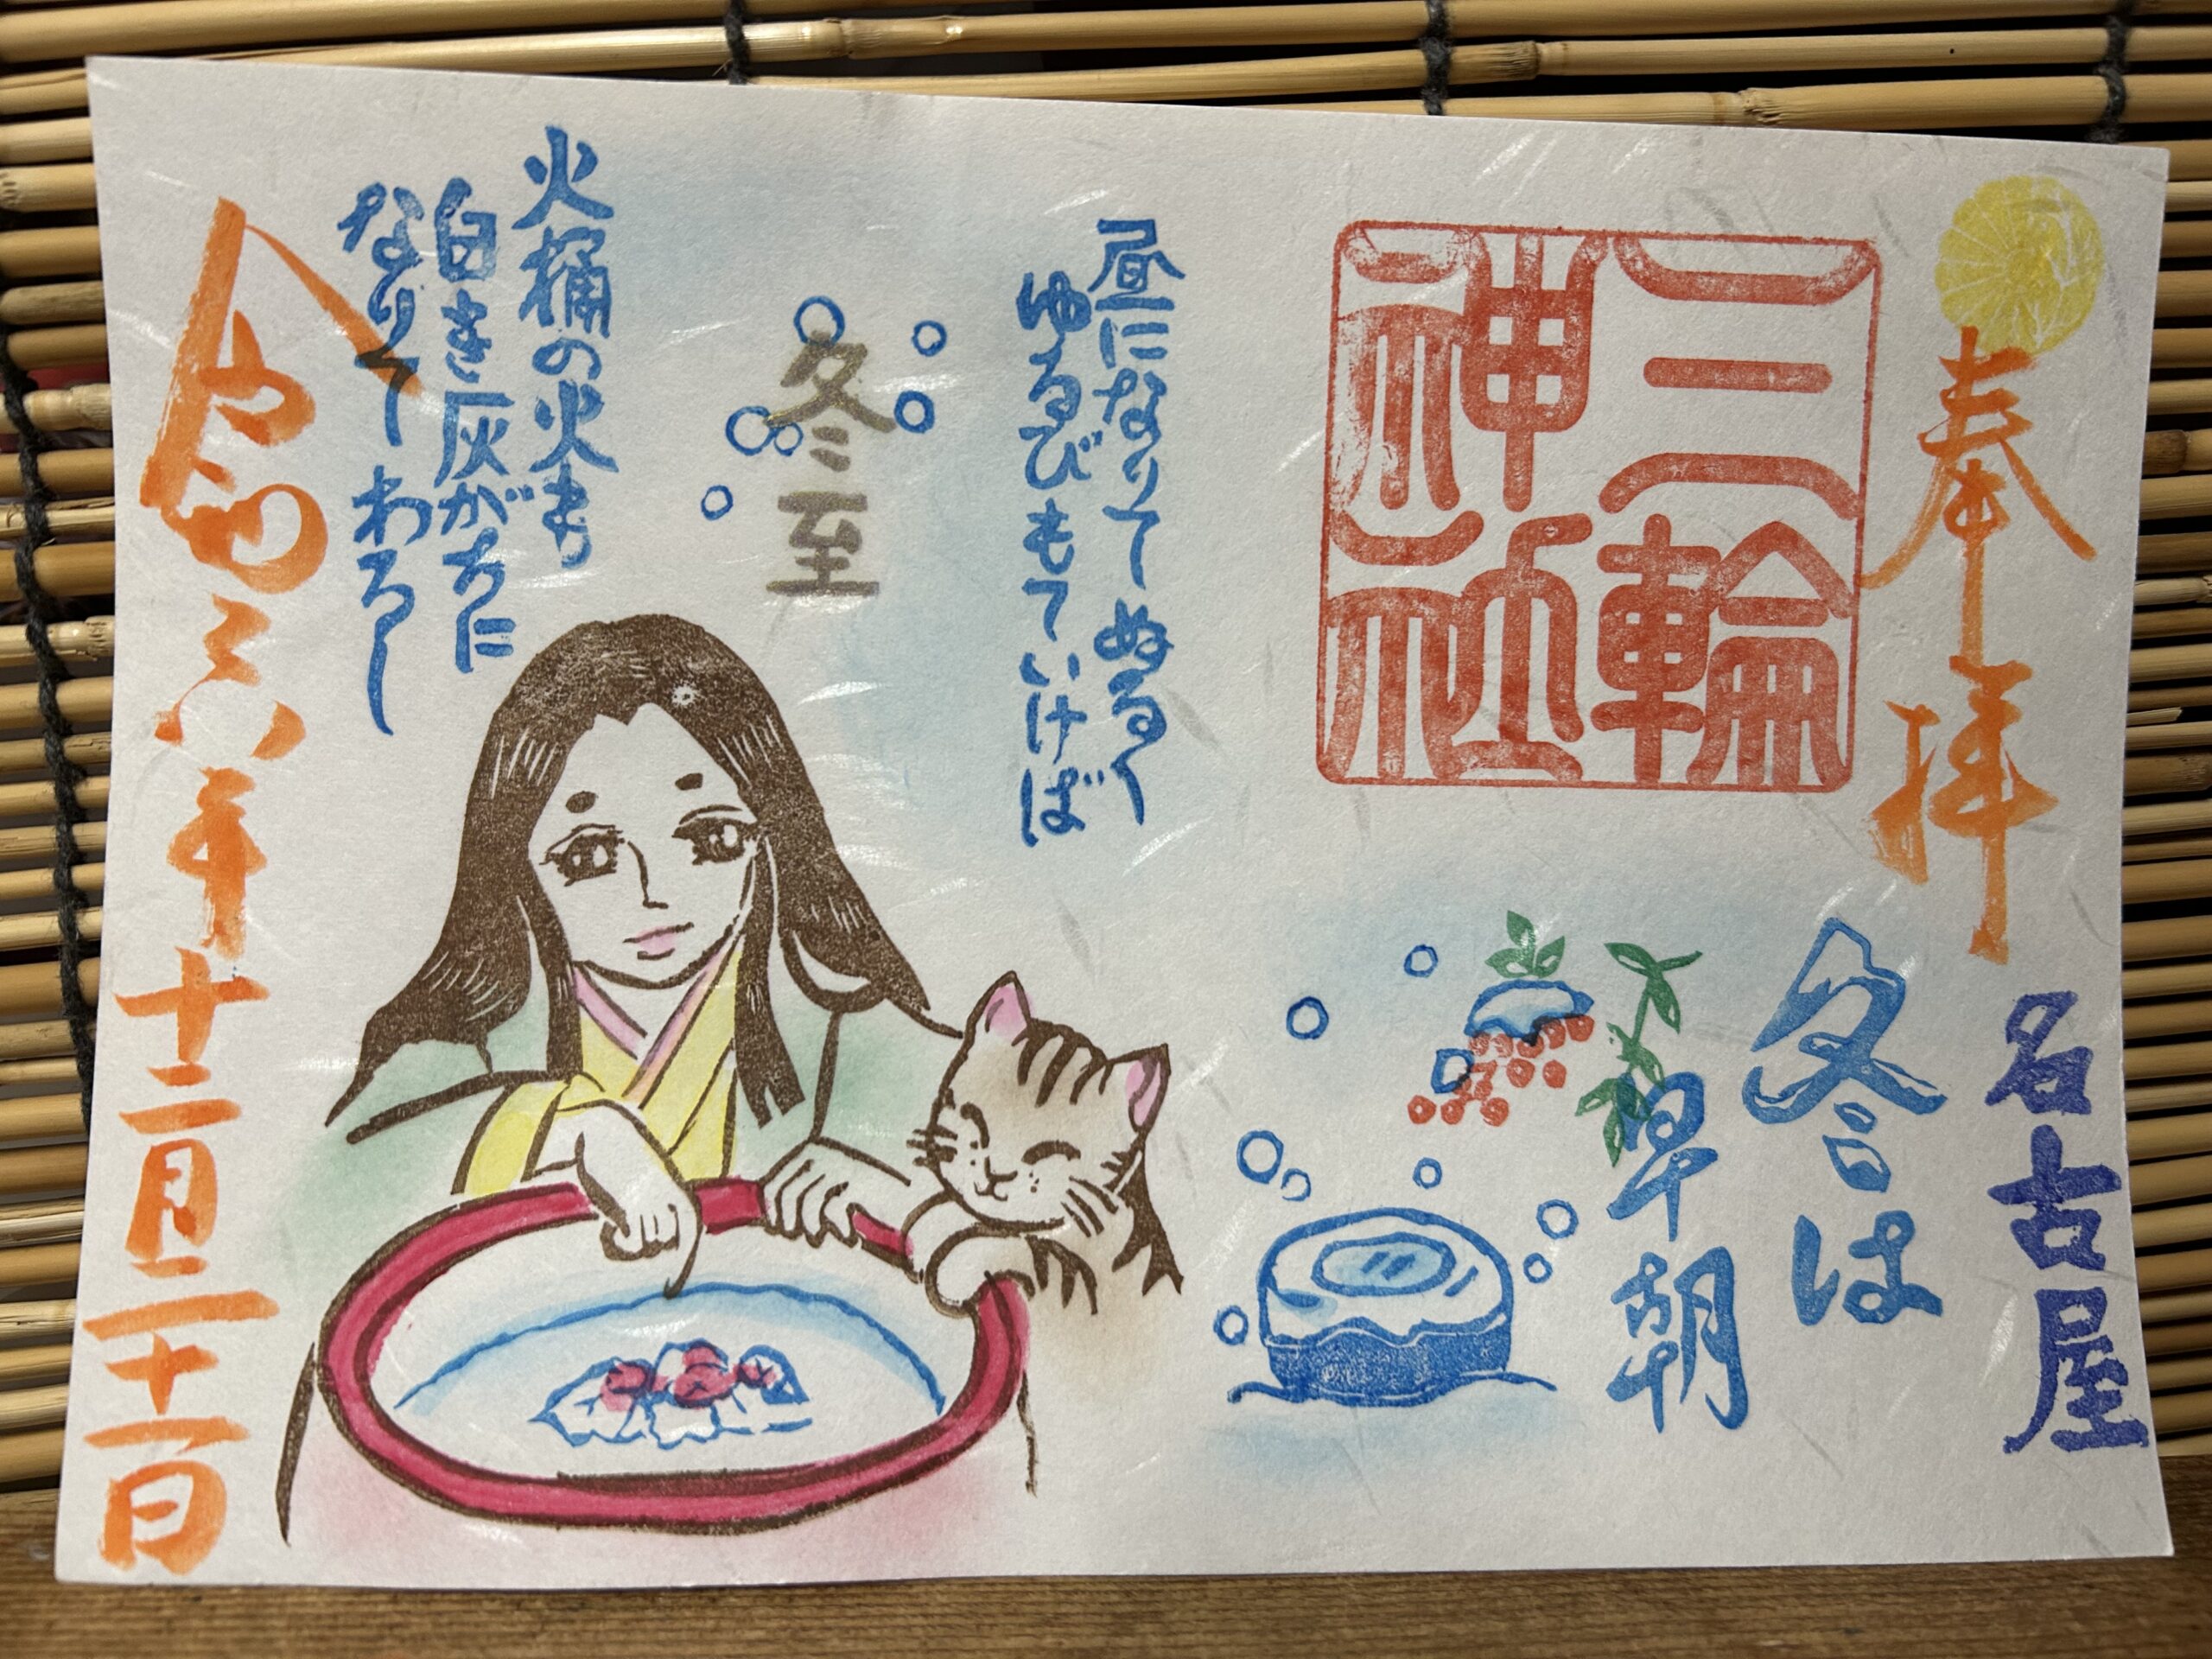 奉拝
名古屋
三輪
神社
冬は
早朝
昼になりてぬるく
ゆるびもていけば
冬至
火桶の火も
白き灰がちに
なりてわろし
令和六年十二月二十一日